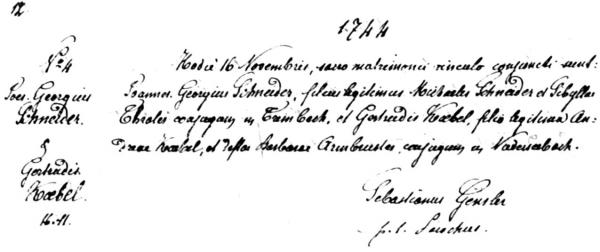 12
1744
Nº 4
Joes. Georgius
Schneider.
&
Gertrudis
Koebel.
16-11.
Hodie 16 Novembris, sacro matrimonii vinculo conjuncti sunt
Joannes Georgius Schneider, filius legitimus Michaelis Schneider et Sibyllae
conjugum in Trimbach, et Gertrudis Koebel, filia legitima An-
dreae Koebel, et Barbarae Armbruster, conjugum in
Sebastianus Gensler
p. t. Parochus.